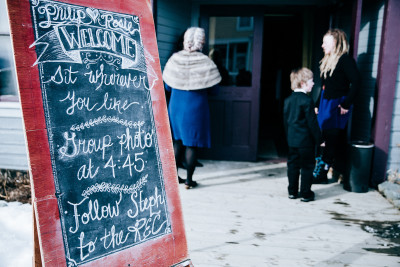 Philip ♥ Rosie
WELCOME
Sit wherever
you like
Group photo
at 4:45
Follow Steph
to the REC